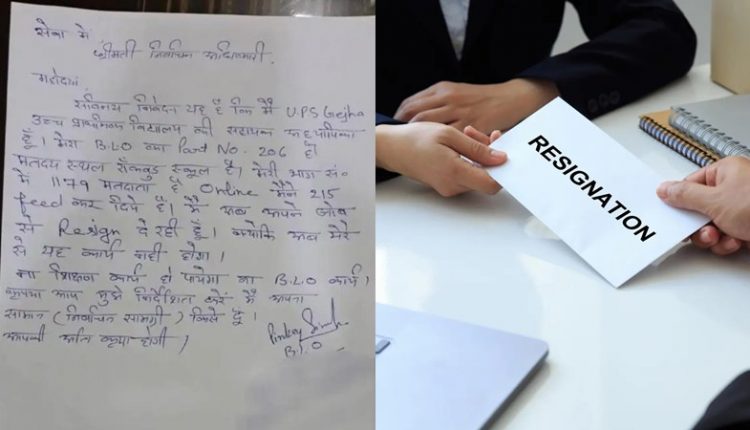 सेवा में
श्रीमती निर्वाचन अधिकारी.
महोदय
सविनय निवेदन यह है कि मैं UPS Gejha
उच्च प्राथमिक विद्यालय की सहायक अध्यापिका
हूँ। मेरा B.L.O का Part No. 206 है
मतदेय स्थल रॉकवुड स्कूल है। मेरी भाग सं०
में 1179 मतदाता है Online मैंने 215
feed कर दिये है। मैं अब अपने जॉब
से Resign दे रही हूँ। क्योंकि अब मेरे
से यह कार्य नही होगा।
ना शिक्षण कार्य हो पायेगा ना B.L.O कार्य।
कृपया आप मुझे निर्देशित करें मैं अपना
सामान (निर्वाचन सामग्री) किसे दूँ।
आपकी अति कृपा होगी।
Pinky Singh
B.L.O
RESIGNATION